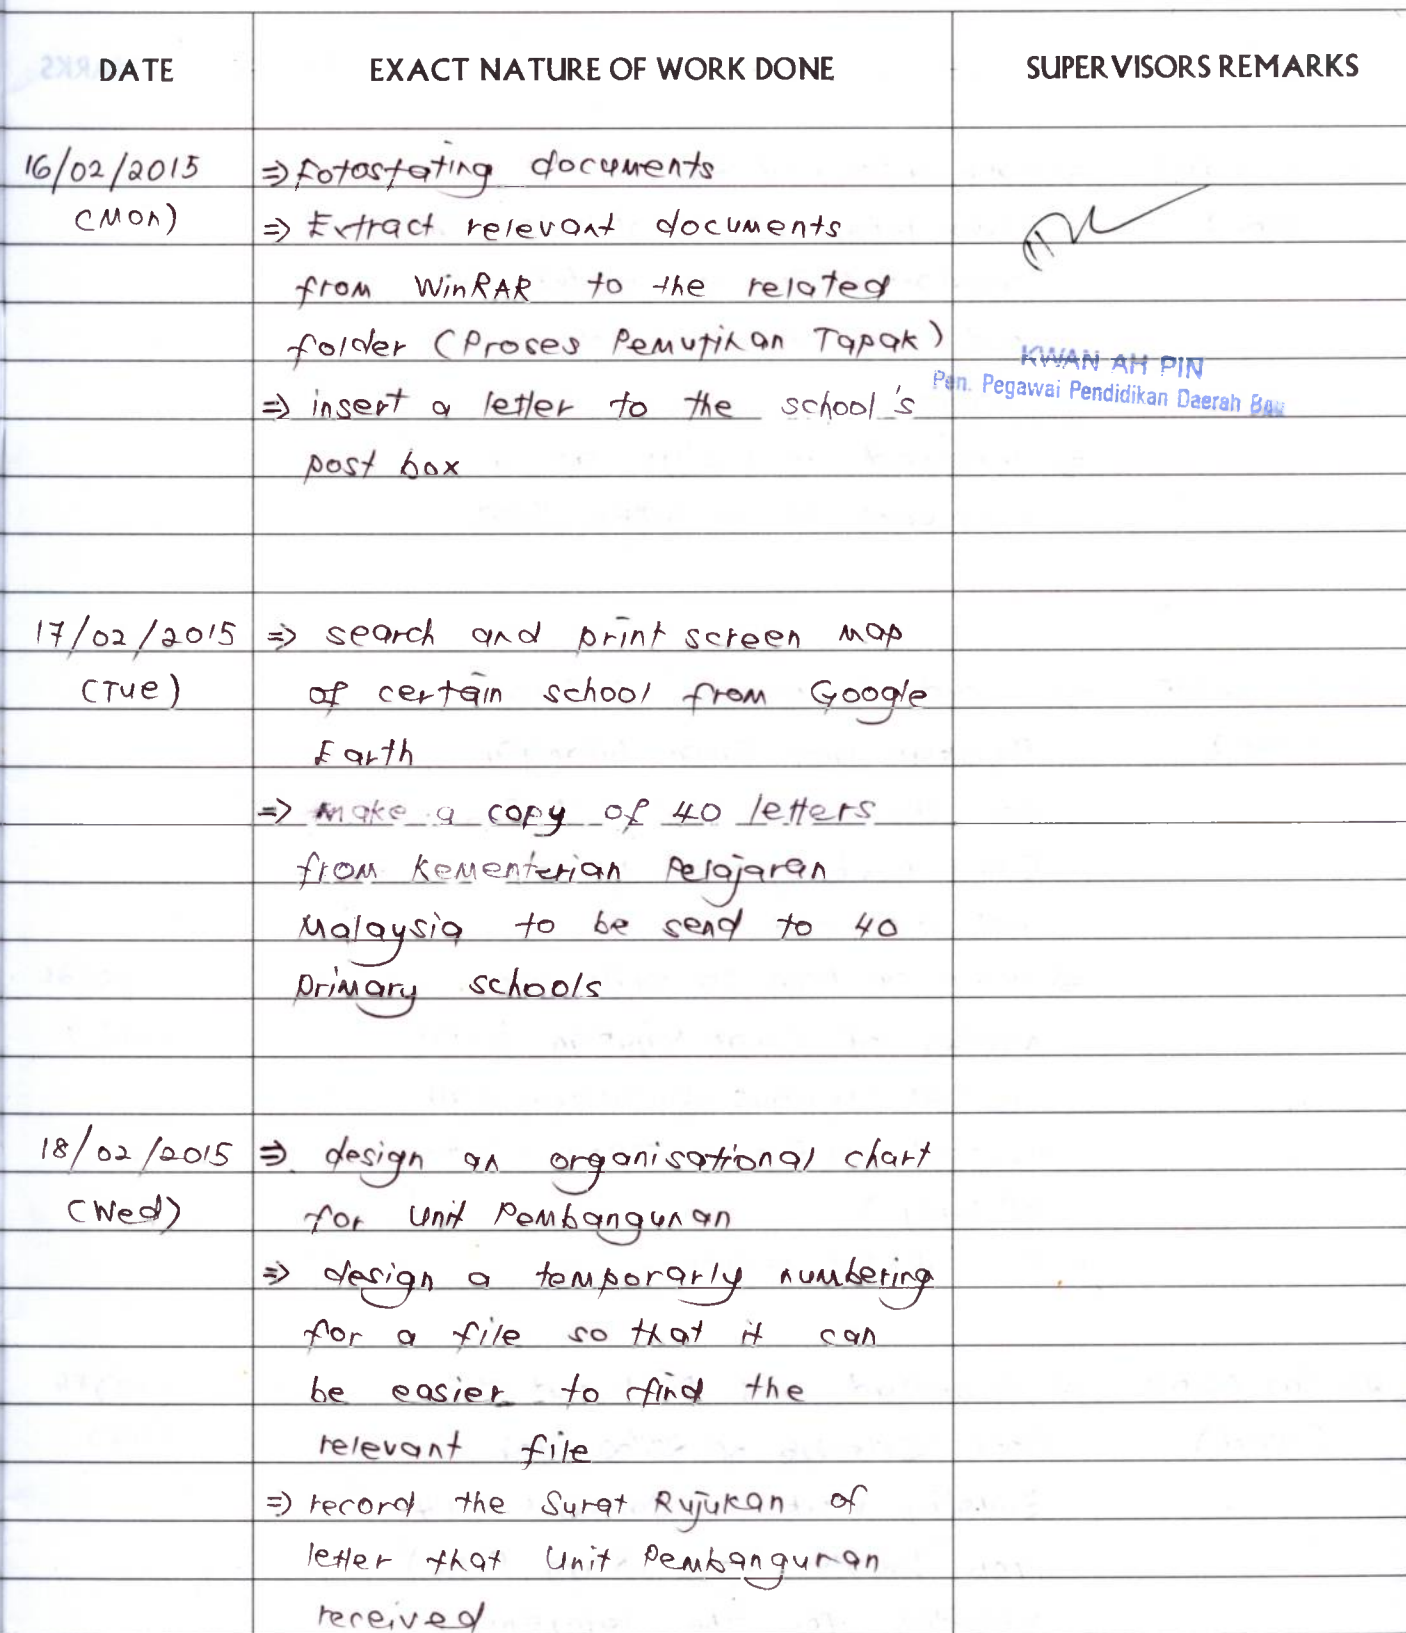 DATE EXACT NATURE OF WORK DONE SUPERVISORS REMARKS
16/02/2015 => Fotostating documents
(Mon) => Extract relevant documents
from WinRAR to the related
folder (Proses Pemutihan Tapak)
KWAN AH PIN
Pen. Pegawai Pendidikan Daerah Bau
=> insert a letter to the school's
post box
17/02/2015 => search and print screen map
(Tue) of certain school from Google
Earth
=> make a copy of 40 letters
from Kementerian Pelajaran
Malaysia to be send to 40
primary schools
18/02/2015 => design an organisational chart
(Wed) for Unit Pembangunan
=> design a temporarly numbering
for a file so that it can
be easier to find the
relevant file
=> record the Surat Rujukan of
letter that Unit Pembangunan
received